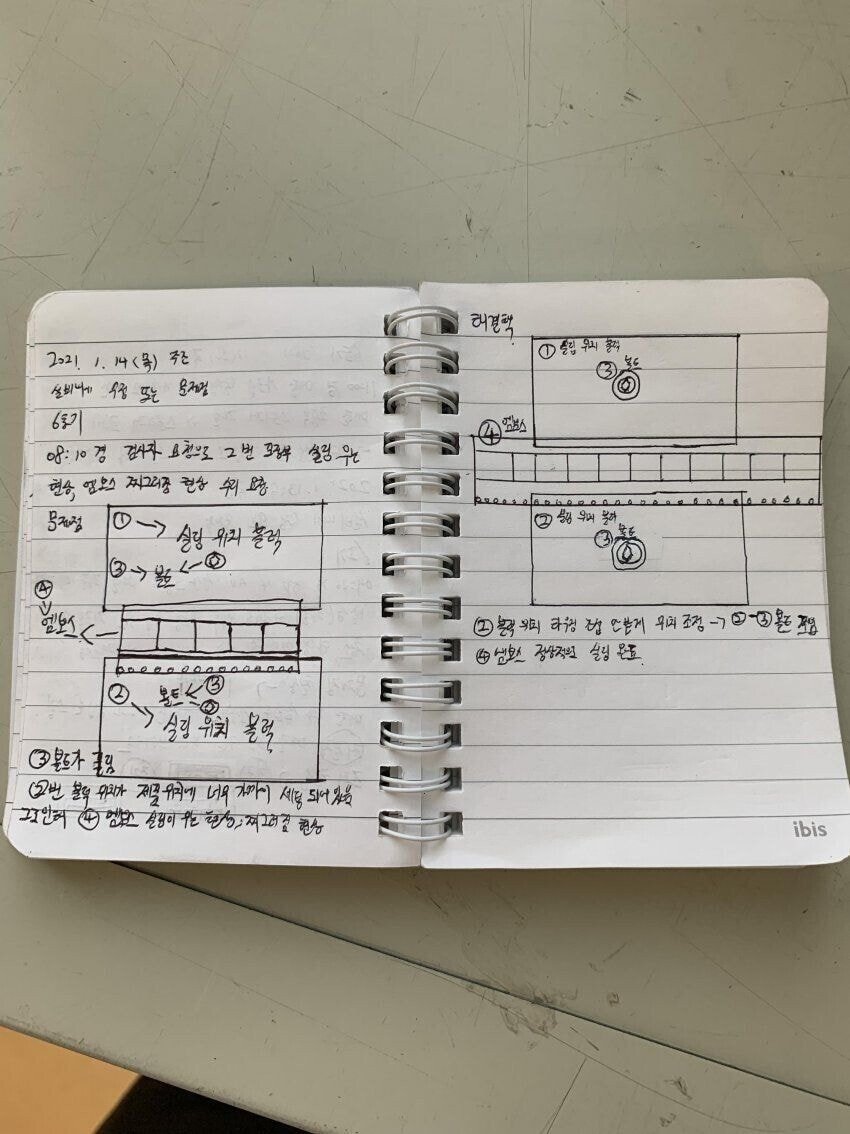 2021. 1. 14 (목) 주간
설비나게 수정 또는 문제점
6호기
08:10 경 검사자 요청으로 2번 포장부 실링 우는
현상, 엠보스 찌그러짐 현상 수리 요함
문제점
① → 실링 위치 블럭
③ → 볼트
④
엠보스
볼트 ③
② → 실링 위치 블럭
③ 볼트가 풀림
②번 블럭 위치가 제품 위치에 너무 가까이 세팅 되어 있음
그로인해 ④ 엠보스 실링이 우는 현상, 찌그러짐 현상
해결책
① 실링 위치 블럭
③ 볼트
④ 엠보스
② 실링 위치 블럭
③ 볼트
② 블럭 위치 조정 → ② - ③ 볼트 조임
④ 엠보스 정상적인 실링 완료
ibis